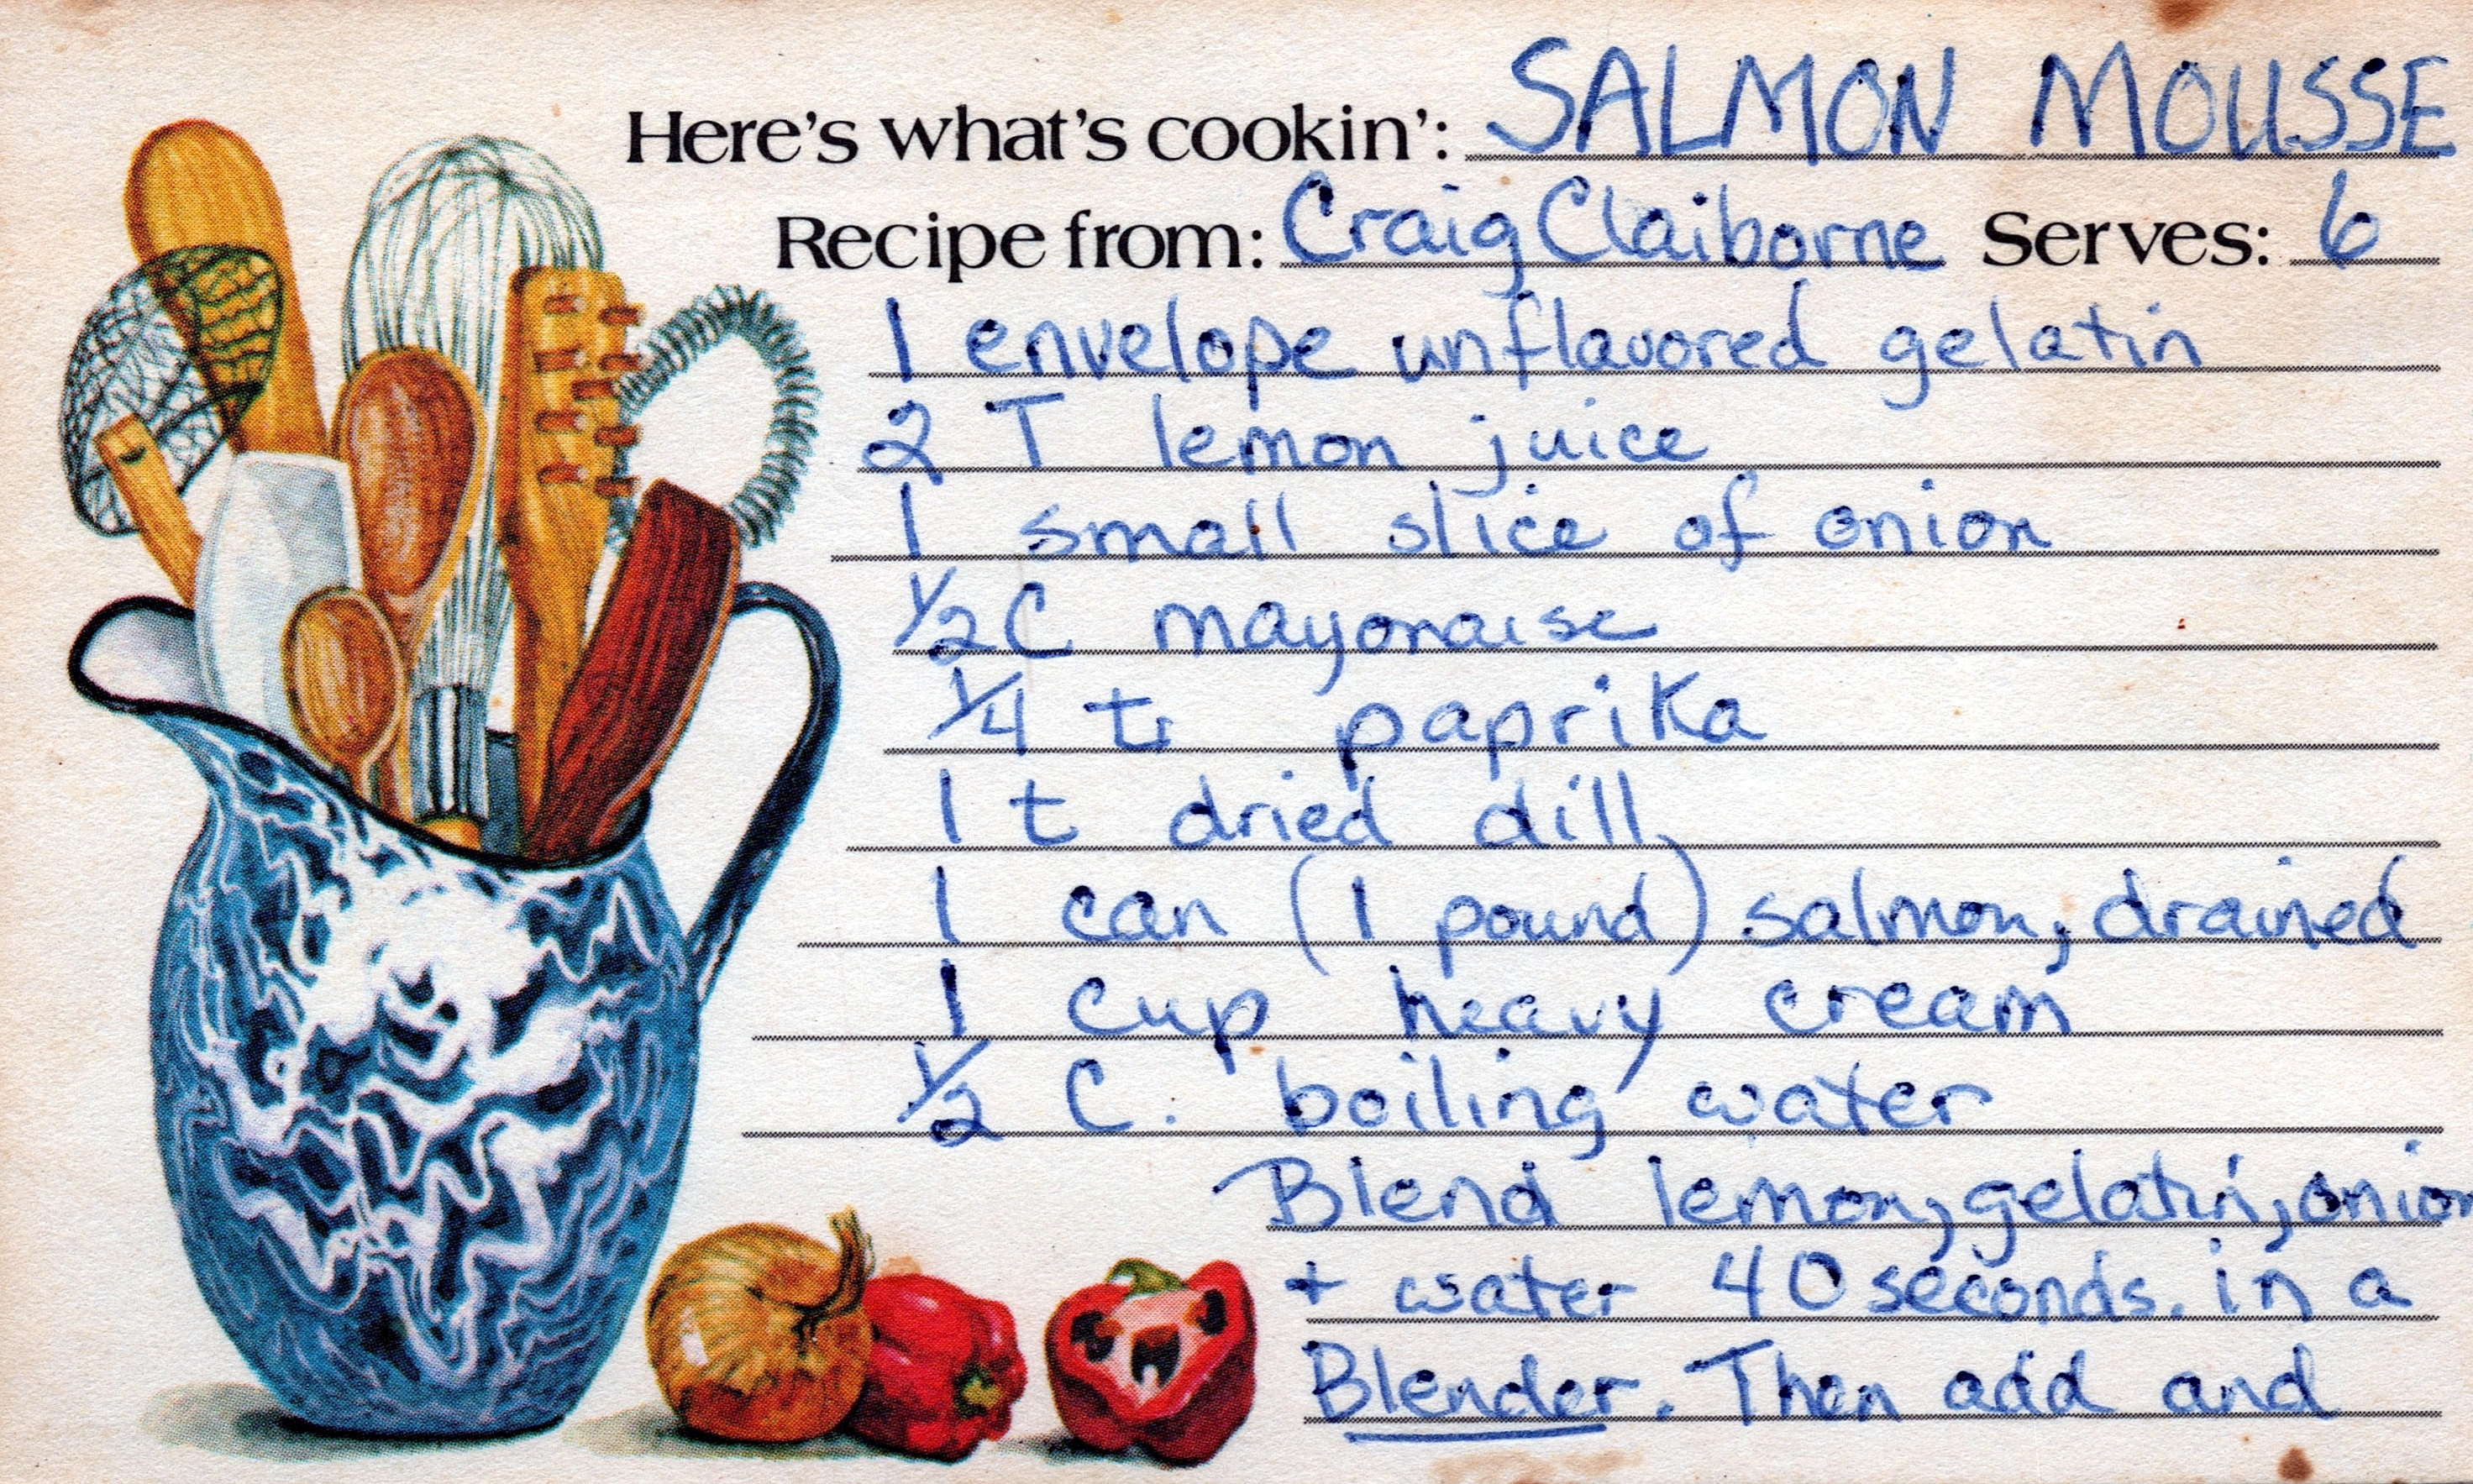 Here's what's cookin': SALMON MOUSSE
Recipe from: Craig Claiborne Serves: 6
1 envelope unflavored gelatin
2 T lemon juice
1 small slice of onion
1/2 C mayonaise
1/4 t paprika
1 t dried dill
1 can (1 pound) salmon, drained
1 cup heavy cream
1/2 C. boiling water
Blend lemon, gelatin, onion
+ water 40 seconds. in a
Blender. Then add and